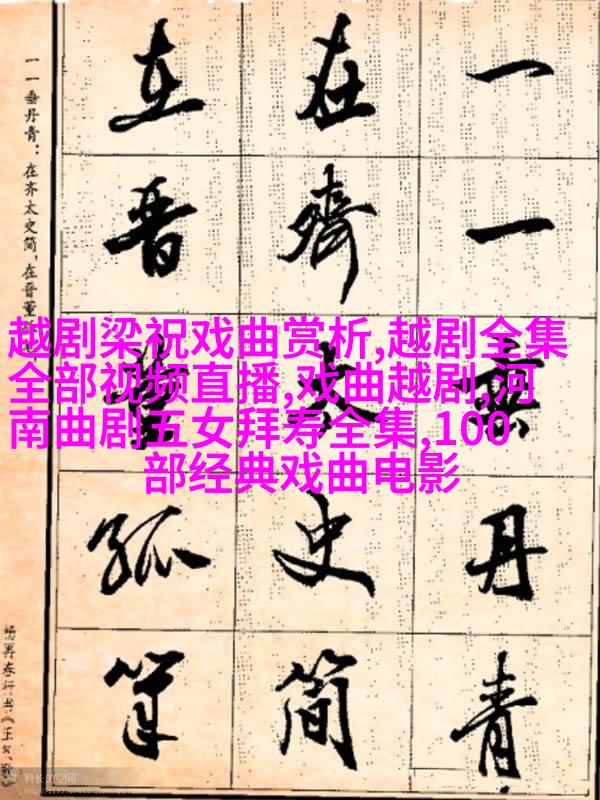 越剧梁祝戏曲赏析,越剧全集
全部视频直播,戏曲越剧,河
南曲剧五女拜寿全集,100
部经典戏曲电影
一一垂丹青
在齊太史简
在晋董狐筆
一一垂丹青：在齐太史简，在晋董
杨再春行书《正气
科长的空间